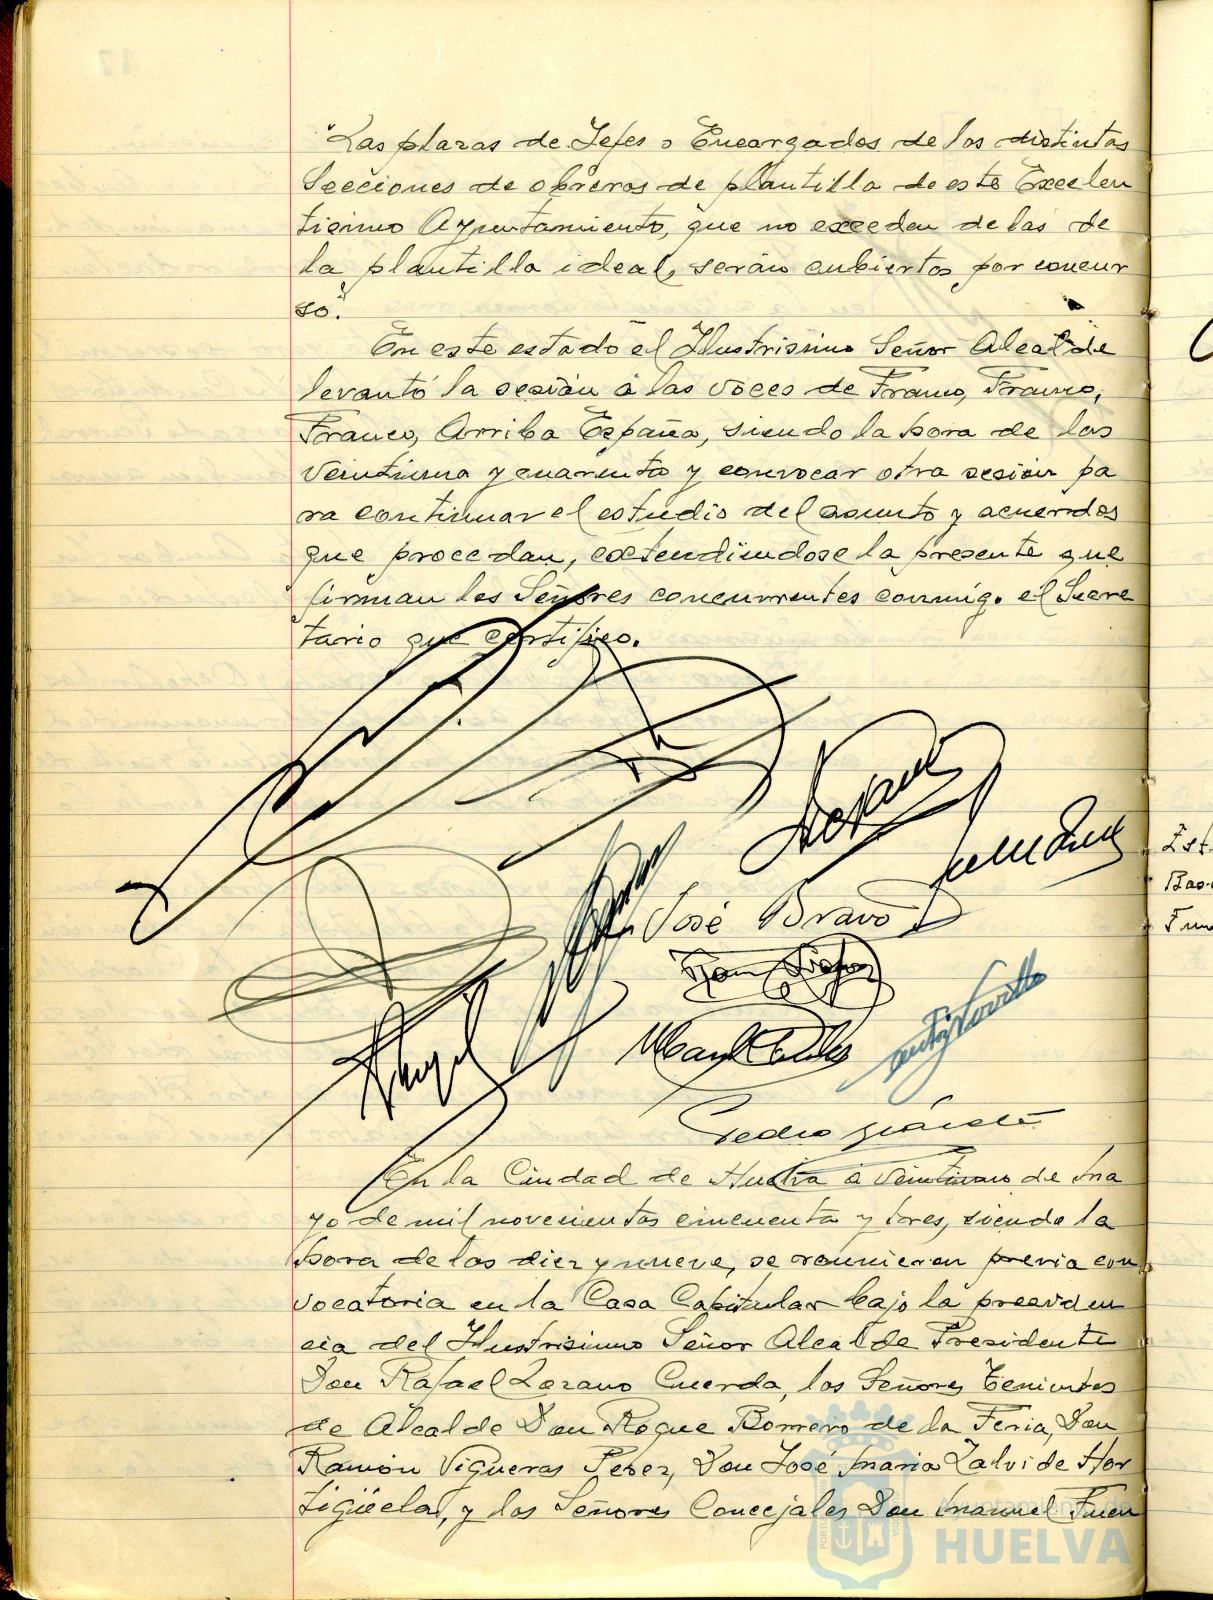 "Las plazas de Jefes o Encargados de las distintas
Secciones de obreros de plantilla de este Excelen
tisimo Ayuntamiento, que no excedan de las de
la plantilla ideal, serán cubiertas por concur
so."
En este estado el Ilustrisimo Señor Alcalde
levantó la sesión a las voces de Franco, Franco,
Franco, Arriba España, siendo la hora de las
veintiuna y cuarenta y convocar otra sesión pa
ra continuar el estudio del asunto y acuerdos
que procedan, extendiendose la presente que
firman los Señores concurrentes conmigo el Secre
tario que certifico.
José Bravo
Pedro
En la Ciudad de Huelva a veintiuno de Ma
yo de mil novecientos cincuenta y tres, siendo la
hora de las diez y nueve, se reunieron previa con
vocatoria en la Casa Capitular bajo la presiden
cia del Ilustrisimo Señor Alcalde Presidente
Don Rafael Lozano Cuerda, los Señores Tenientes
de Alcalde Don Roque Borrero de la Feria, Don
Ramón Vigueras Perez, Don José Maria Zalvide Hor
tigüela, y los Señores Concejales Don Manuel Fuen
Ayuntamiento de
HUELVA